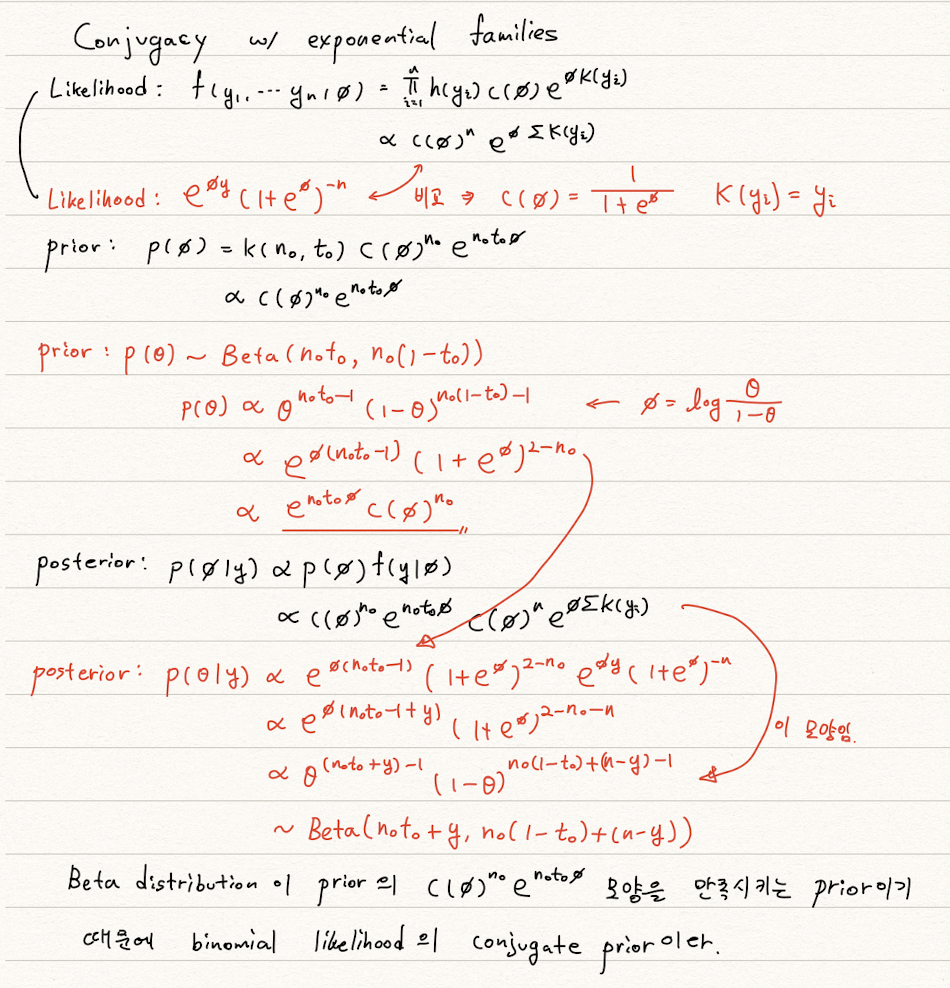 Conjugacy w/ exponential families
Likelihood : f(y₁, ⋯ yₙ | ø) = ∏ᵢ₌₁ⁿ h(yᵢ) c(ø) e^{øK(yᵢ)}
∝ c(ø)ⁿ e^{ø ΣK(yᵢ)}
Likelihood : e^{øy} (1+e^ø)^{-n} ← 비교 ⇒ c(ø) = 1/(1+e^ø) K(yᵢ) = yᵢ
prior : p(ø) = k(n₀, t₀) c(ø)^{n₀} e^{n₀t₀ø}
∝ c(ø)^{n₀} e^{n₀t₀ø}
prior : p(θ) ~ Beta(n₀t₀, n₀(1-t₀))
p(θ) ∝ θ^{n₀t₀-1} (1-θ)^{n₀(1-t₀)-1} ← ø = log θ/(1-θ)
∝ e^{ø(n₀t₀-1)} (1+e^ø)^{2-n₀}
∝ e^{n₀t₀ø} c(ø)^{n₀} 〃
posterior : p(ø|y) ∝ p(ø) f(y|ø)
∝ c(ø)^{n₀} e^{n₀t₀ø} c(ø)ⁿ e^{øΣK(yᵢ)}
posterior : p(θ|y) ∝ e^{ø(n₀t₀-1)} (1+e^ø)^{2-n₀} e^{øy} (1+e^ø)^{-n}
∝ e^{ø(n₀t₀-1+y)} (1+e^ø)^{2-n₀-n}
이 모양임.
∝ θ^{(n₀t₀+y)-1} (1-θ)^{n₀(1-t₀)+(n-y)-1}
~ Beta(n₀t₀+y, n₀(1-t₀)+(n-y))
Beta distribution 이 prior 의 c(ø)^{n₀} e^{n₀t₀ø} 모양을 만족시키는 prior이기
때문에 binomial likelihood 의 conjugate prior이다.